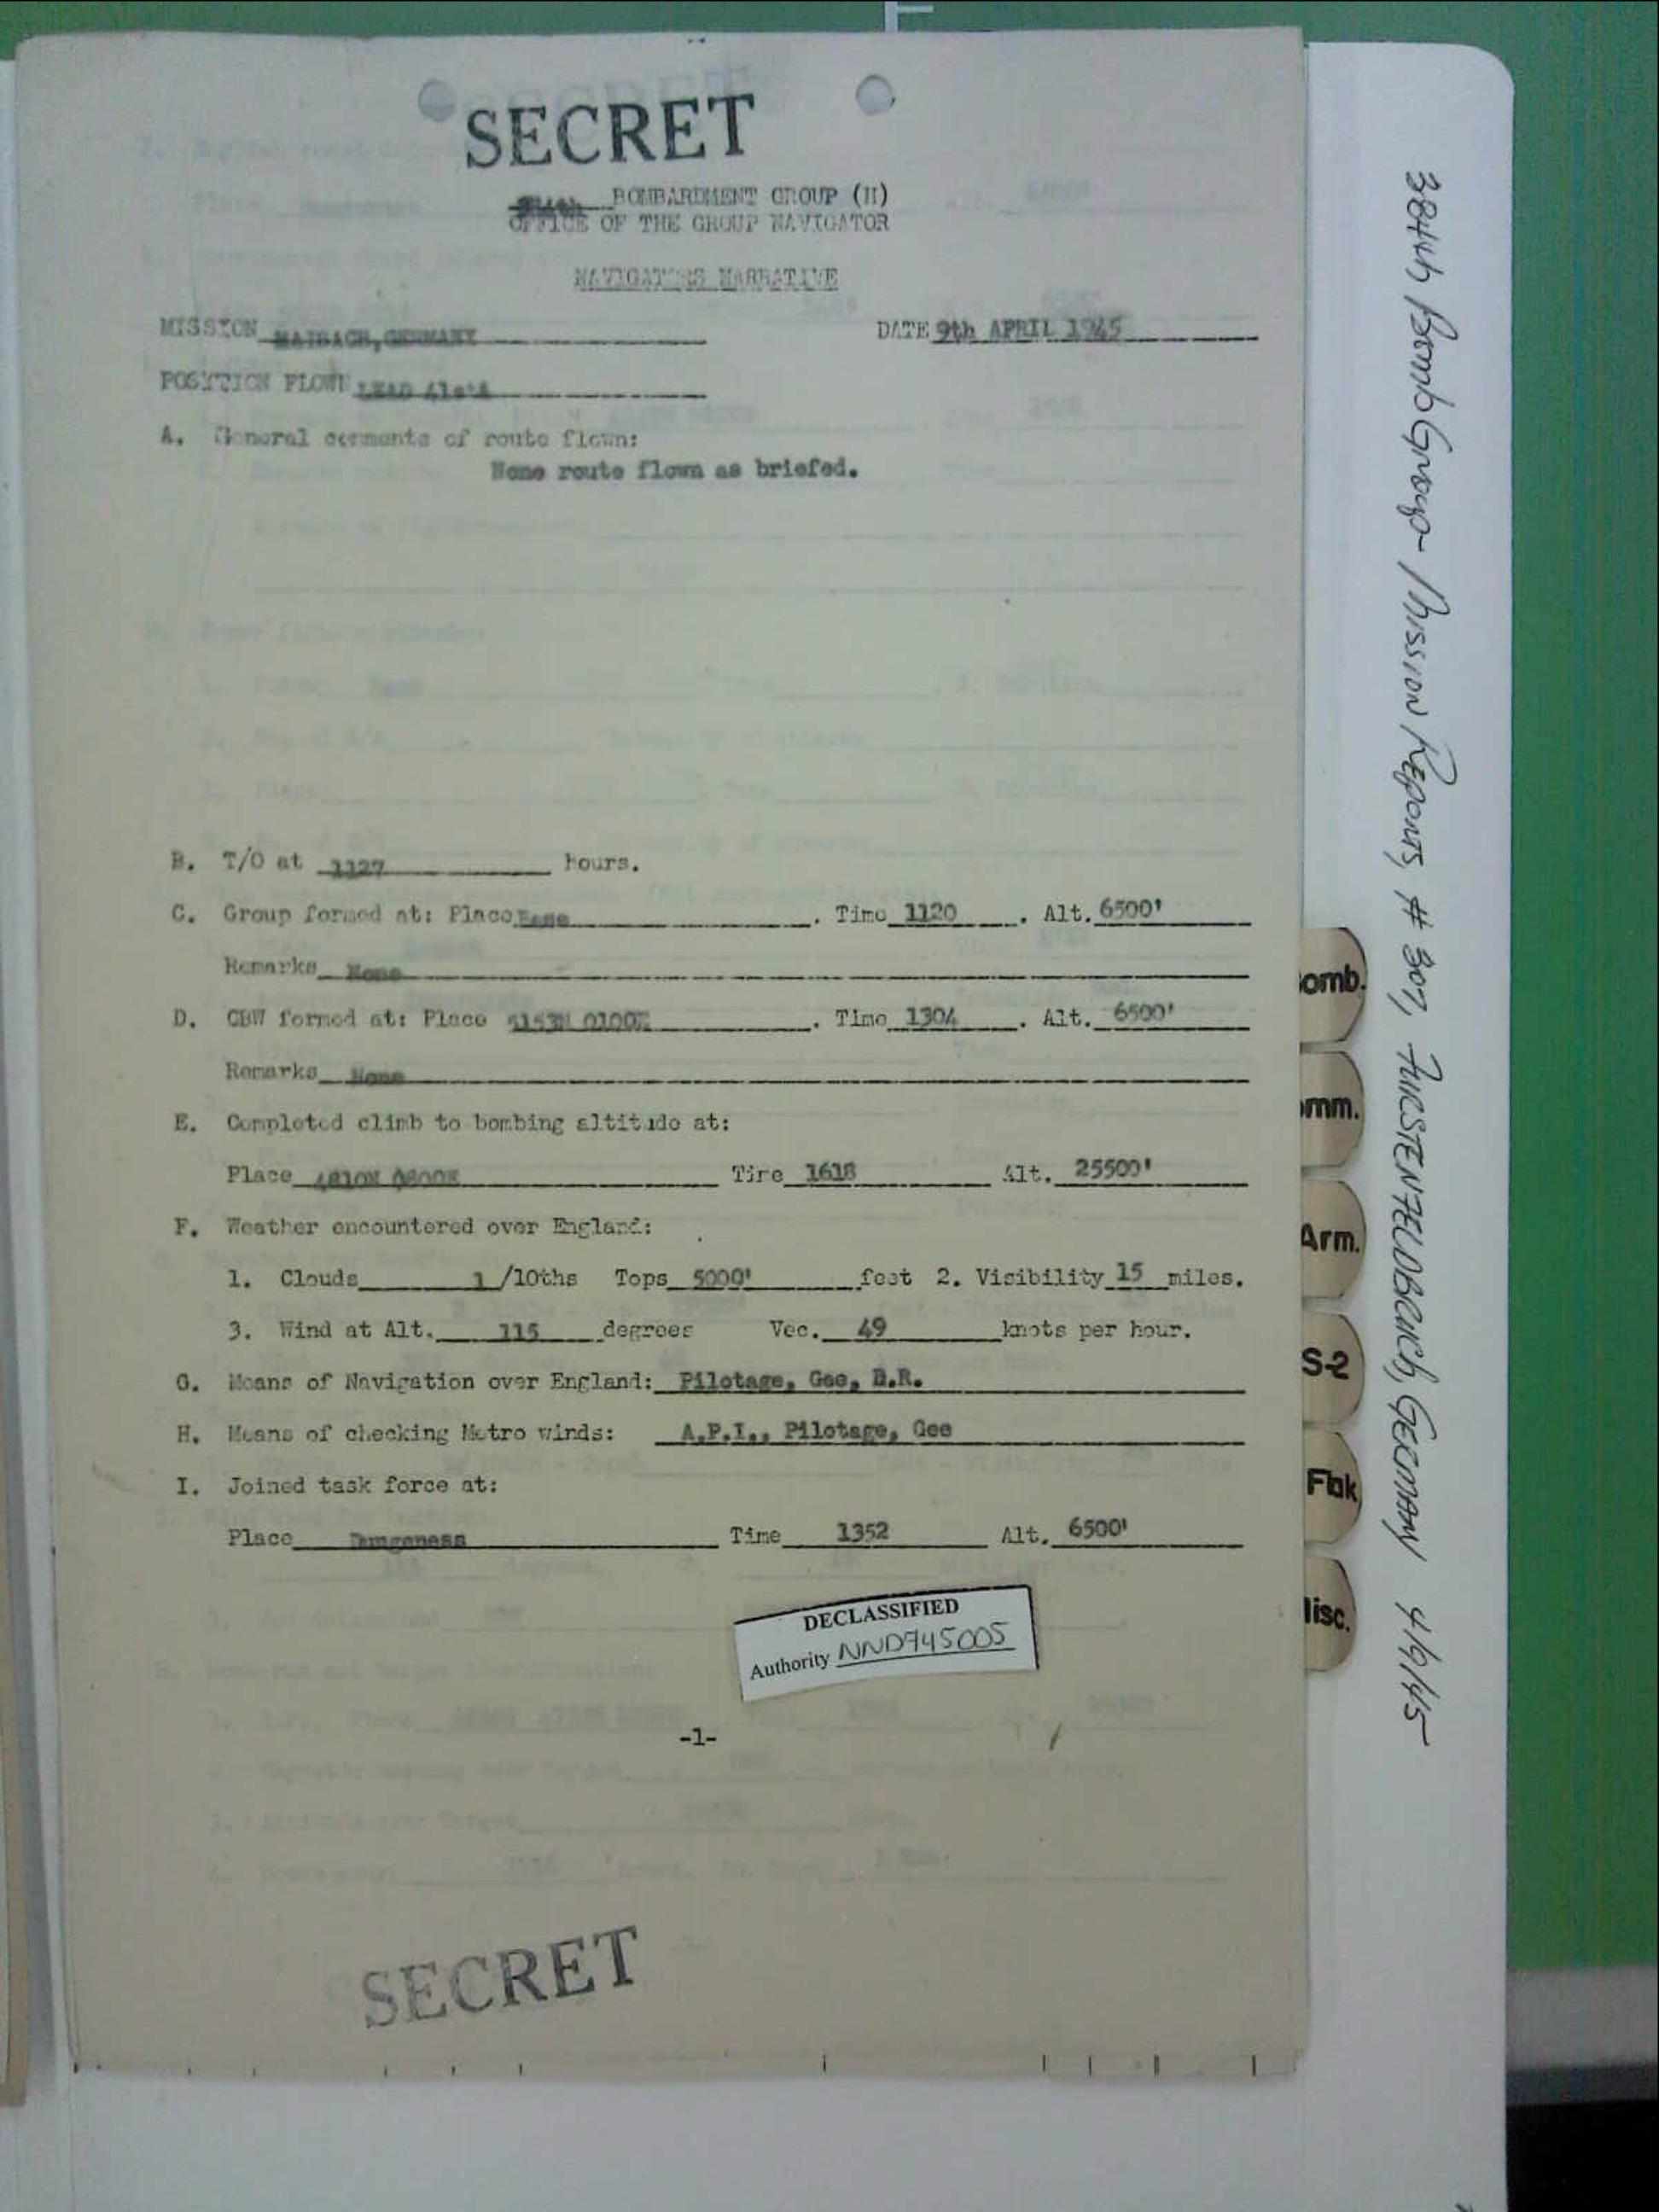 SECRET
BOMBARDMENT GROUP (H)
OFFICE OF THE GROUP NAVIGATOR
NAVIGATORS NARRATIVE
MISSION MAISACH, GERMANY DATE 9th APRIL 1945
POSITION FLOWN LEAD 41stA
A. General comments of route flown:
None route flown as briefed.
B. T/O at 1127 hours.
C. Group formed at: Place Base . Time 1120 . Alt. 6500'
Remarks None
D. CBW formed at: Place 5153N 0100E . Time 1304 . Alt. 6500'
Remarks None
E. Completed climb to bombing altitude at:
Place 4810N 0800E Time 1618 Alt. 25500'
F. Weather encountered over England:
1. Clouds 1 /10ths Tops 5000' feet 2. Visibility 15 miles.
3. Wind at Alt. 115 degrees Vec. 49 knots per hour.
G. Means of Navigation over England: Pilotage, Gee, D.R.
H. Means of checking Metro winds: A.P.I., Pilotage, Gee
I. Joined task force at:
Place Dungeness Time 1352 Alt. 6500'
DECLASSIFIED
Authority NND745005
-1-
SECRET
384th Bomb Group - Mission Reports, # 307, FURSTENFELDBRUCH, GERMANY 4/9/45
omb.
omm.
Arm.
S-2
Flak
lisc.